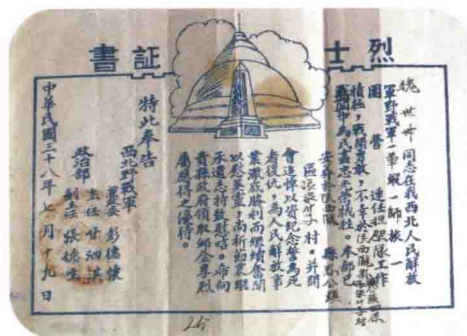 烈士証書
魏世册同志在我西北人民解放
軍野戰軍一軍縱一師旅一
團營連任担架隊工作
積極,戰鬥勇敢,不幸於陝西
戰鬥中為民盡忠光榮犧牲。本部已
安葬於
區 村。并開
會追悼以資紀念誓為死
者復仇,為人民解放事
業澈底勝利而繼續奮鬥
以慰英靈,尚祈節哀繼
承遺志特致慰唁。希向
貴縣政府領取卹金享烈
屬應得之優待。
特此奉告
西北野戰軍
彭德懷
政治部
主任 甘泗淇
副主任 張德生
中華民國三十八年七月十九日